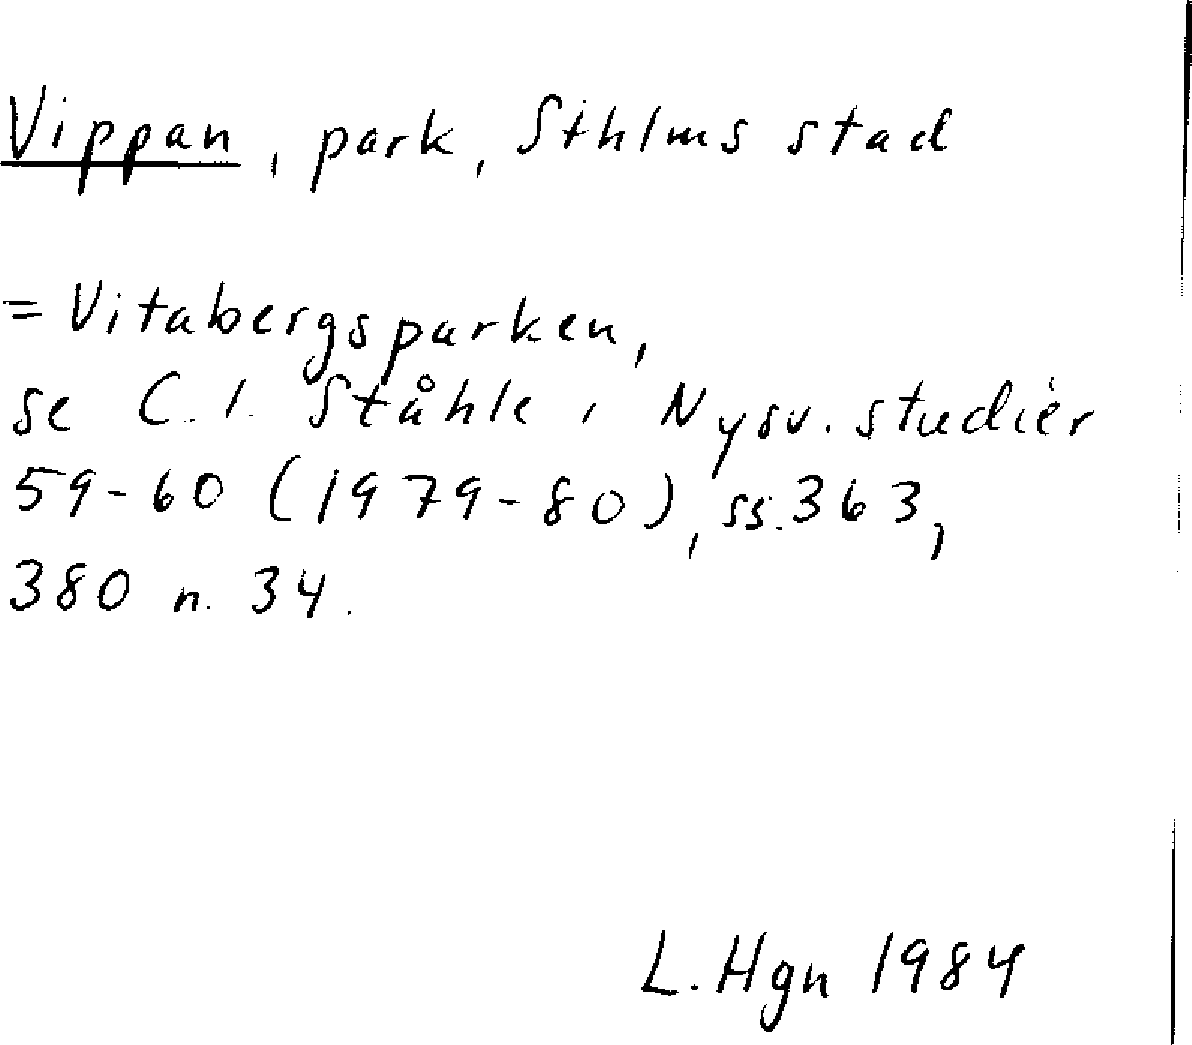 Vippan, park, Sthlms stad
= Vitabergsparken,
se C.I. Ståhle i Nysv. studier
59-60 (1979-80), ss. 363,
380 n. 34.
L. Hgn 1984